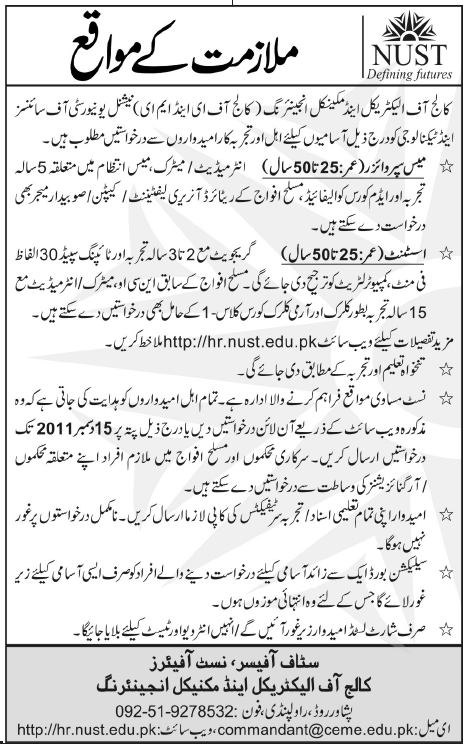 ملازمت کے مواقع
NUST
Defining futures
کالج آف الیکٹریکل اینڈ مکینیکل انجینئرنگ (کالج آف ای اینڈ ایم ای) نیشنل یونیورسٹی آف سائنسز
اینڈ ٹیکنالوجی کو درج ذیل آسامیوں کیلئے اہل اور تجربہ کار امیدواروں سے درخواستیں مطلوب ہیں۔
☆ میس سپروائزر (عمر: 25 تا 50 سال) انٹرمیڈیٹ / میٹرک، میس انتظام میں متعلقہ 5 سالہ
تجربہ اور ایڈم کورس کوالیفائیڈ، مسلح افواج کے ریٹائرڈ آنریری لیفٹیننٹ / کیپٹن / صوبیدار میجر بھی
درخواست دے سکتے ہیں۔
☆ اسسٹنٹ (عمر: 25 تا 50 سال) گریجویٹ مع 2 تا 3 سالہ تجربہ اور ٹائپنگ سپیڈ 30 الفاظ
فی منٹ، کمپیوٹر لٹریٹ کو ترجیح دی جائے گی۔ مسلح افواج کے سابق این سی او، میٹرک / انٹرمیڈیٹ مع
15 سالہ تجربہ بطور کلرک اور آرمی کلرک کورس کلاس-1 کے حامل بھی درخواستیں دے سکتے ہیں۔
مزید تفصیلات کیلئے ویب سائٹ http://hr.nust.edu.pk ملاحظہ کریں۔
☆ تنخواہ تعلیم اور تجربہ کے مطابق دی جائے گی۔
☆ نسٹ مساوی مواقع فراہم کرنے والا ادارہ ہے۔ تمام اہل امیدواروں کو ہدایت کی جاتی ہے کہ وہ
مذکورہ ویب سائٹ کے ذریعے آن لائن درخواستیں دیں یا درج ذیل پتہ پر 15 دسمبر 2011 تک
درخواستیں ارسال کریں۔ سرکاری محکموں اور مسلح افواج میں ملازم افراد اپنے متعلقہ محکموں
/ آرگنائزیشنز کی وساطت سے درخواستیں دے سکتے ہیں۔
☆ امیدوار اپنی تمام تعلیمی اسناد / تجربہ سرٹیفکیٹس کی کاپی لازما ارسال کریں۔ نامکمل درخواستوں پر غور
نہیں ہوگا۔
☆ سیلیکشن بورڈ ایک سے زائد آسامی کیلئے درخواست دینے والے افراد کو صرف ایسی آسامی کیلئے زیر
غور لائے گا جس کے لئے وہ انتہائی موزوں ہوں۔
☆ صرف شارٹ لسٹڈ امیدوار زیر غور آئیں گے / انہیں انٹرویو اور ٹیسٹ کیلئے بلایا جائیگا۔
سٹاف آفیسر، نسٹ آفیئرز
کالج آف الیکٹریکل اینڈ مکنیکل انجینئرنگ
پشاور روڈ، راولپنڈی، فون: 092-51-9278532
ای میل: commandant@ceme.edu.pk، ویب سائٹ: http://hr.nust.edu.pk